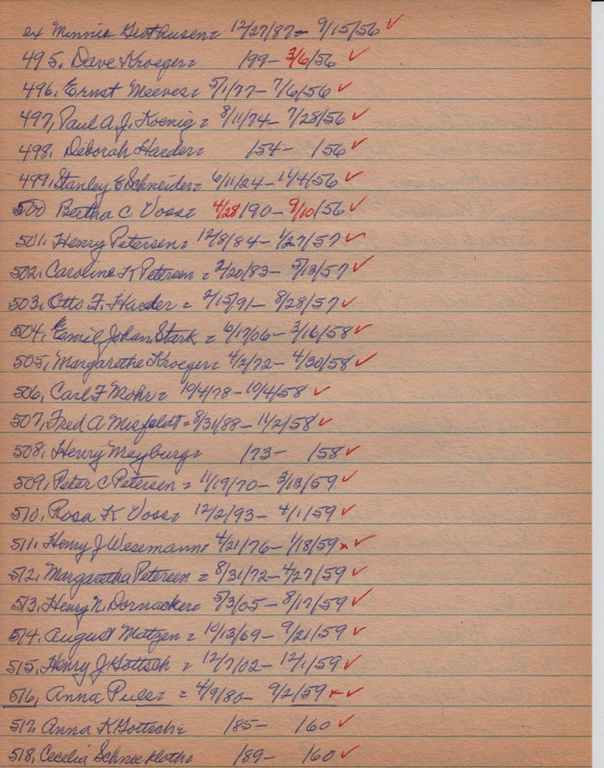 ex Minnie Geothusen = 12/27/87 - 9/15/56 ✓
495. Dave Kroeger = /99 - 3/6/56 ✓
496. Ernst Meeves = 5/1/77 - 7/6/56 ✓
497, Paul A.J. Koenig = 8/11/74 - 7/28/56 ✓
498. Deborah Harder = /54 - /56 ✓
499, Stanley E Schneider = 6/11/24 - 11/4/56 ✓
500 Bertha C Voss = 4/28/90 - 9/10/56 ✓
501. Henry Petersen = 12/8/84 - 1/27/57 ✓
502, Caroline K Petersen = 2/20/83 - 5/13/57 ✓
503. Otto F. Harder = 2/15/91 - 8/28/57 ✓
504, Emil Johan Stark = 6/17/06 - 3/16/58 ✓
505, Margarethe Kroeger = 4/2/72 - 4/30/58 ✓
506, Carl F Mohr = 10/4/78 - 10/4/58 ✓
507, Fred A Misfeldt = 8/31/88 - 11/2/58 ✓
508, Henry Meyburg = /73 - /58 ✓
509, Peter C Petersen = 11/19/70 - 3/13/59 ✓
510, Rosa K Voss = 12/2/93 - 4/1/59 ✓
511. Henry J Wesemann = 4/21/76 - 1/18/59 x ✓
512, Margaretha Petersen = 8/31/72 - 4/27/59 ✓
513, Henry N. Dornacker = 5/3/05 - 8/17/59 ✓
514, August Matzen = 10/13/69 - 9/21/59 ✓
515, Henry J Gottsch = 12/7/02 - 12/1/59 ✓
516, Anna Puls = 4/9/80 - 9/2/59 x ✓
517, Anna K Gottsch = /85 - /60 ✓
518, Cecelia Schneekloth = /89 - /60 ✓